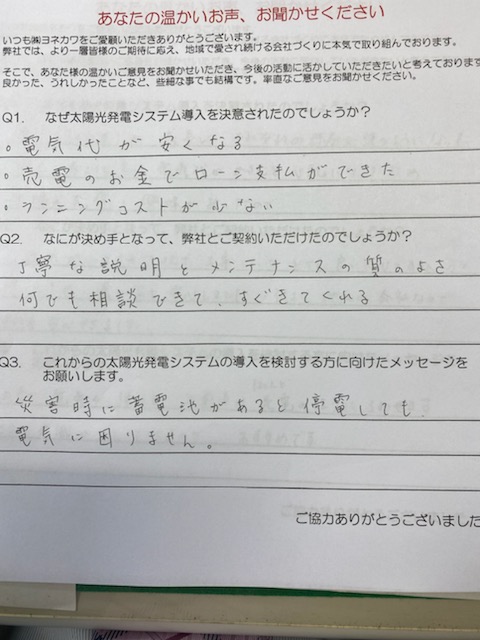 あなたの温かいお声、お聞かせください
いつも㈱ヨネカワをご愛顧いただきありがとうございます。
弊社では、より一層皆様のご期待に応え、地域で愛され続ける会社づくりに本気で取り組んでおります。
そこで、あなた様の温かいご意見をお聞かせいただき、今後の活動に活かしていただきたいと考えております
良かった、うれしかったことなど、些細な事でも結構です。率直なご意見をお聞かせください。
Q1. なぜ太陽光発電システム導入を決意されたのでしょうか？
。電気代が安くなる
。売電のお金でローン支払ができた
。ランニングコストが少ない
Q2. なにが決め手となって、弊社とご契約いただけたのでしょうか？
丁寧な説明とメンテナンスの質のよさ
何でも相談できて、すぐきてくれる
Q3. これからの太陽光発電システムの導入を検討する方に向けたメッセージを
お願いします。
災害時に蓄電池があると停電しても
電気に困りません。
ご協力ありがとうございました